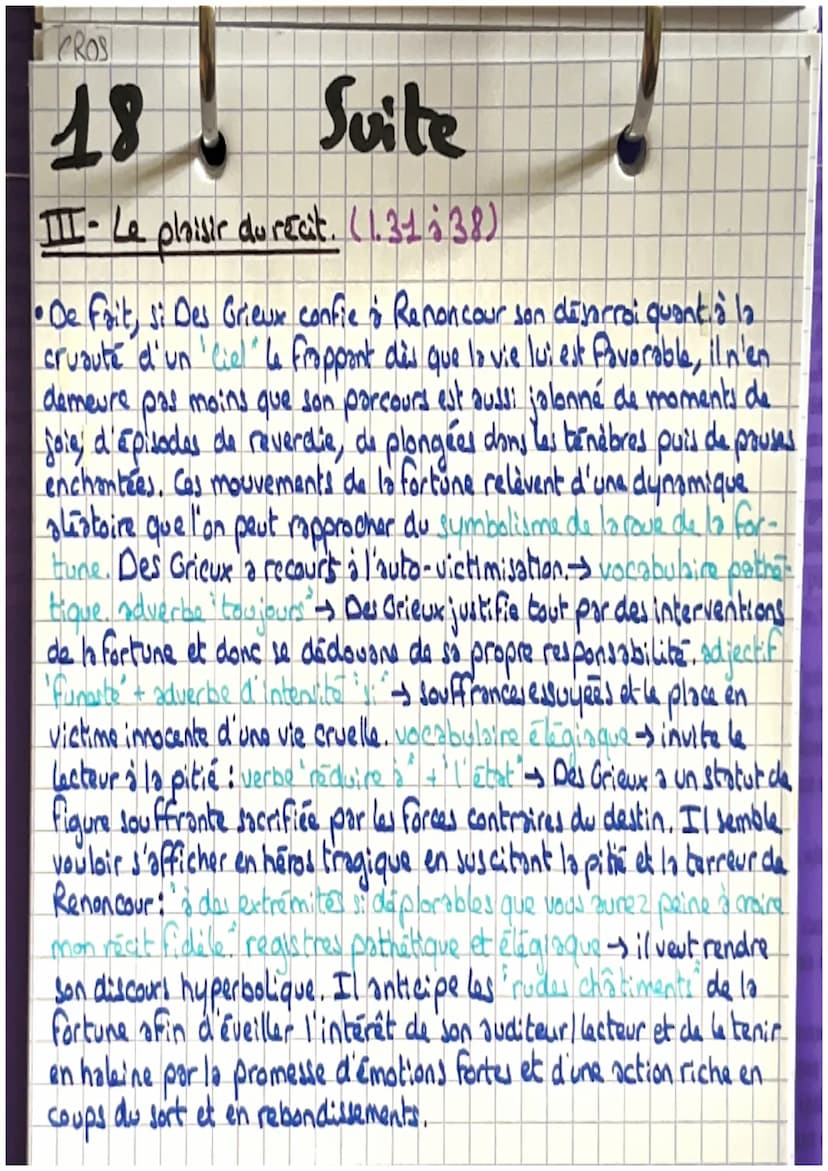 CROS
18 Suite
III- Le plaisir du récit. (l.31 à 38)
• De fait, si Des Grieux confie à Renoncour son désarroi quant à la
cruauté d'un "Ciel" le frappant dès que la vie lui est favorable, il n'en
demeure pas moins que son parcours est aussi jalonné de moments de
joie, d'épisodes de reverdie, de plongées dans les ténèbres puis de pauses
enchantées. Ces mouvements de la fortune relèvent d'une dynamique
aléatoire que l'on peut rapprocher du symbolisme de la roue de la for-
tune. Des Grieux a recours à l'auto-victimisation. → vocabulaire pathé-
tique. adverbe "toujours" → Des Grieux justifie tout par des interventions
de la fortune et donc se dédouane de sa propre responsabilité. adjectif
"funeste" + adverbe d'intensité "si" → souffrances essuyées et le place en
victime innocente d'une vie cruelle. vocabulaire élégiaque → invite le
lecteur à la pitié : verbe "réduire à" + "l'état" → Des Grieux a un statut de
figure souffrante sacrifiée par les forces contraires du destin. Il semble
vouloir s'afficher en héros tragique en suscitant la pitié et la terreur de
Renoncour : "à des extrémités si déplorables que vous aurez peine à croire
mon récit fidèle". registres pathétique et élégiaque → il veut rendre
son discours hyperbolique. Il anticipe les "rudes châtiments" de la
fortune afin d'éveiller l'intérêt de son auditeur/lecteur et de le tenir
en haleine par la promesse d'émotions fortes et d'une action riche en
coups du sort et en rebondissements.